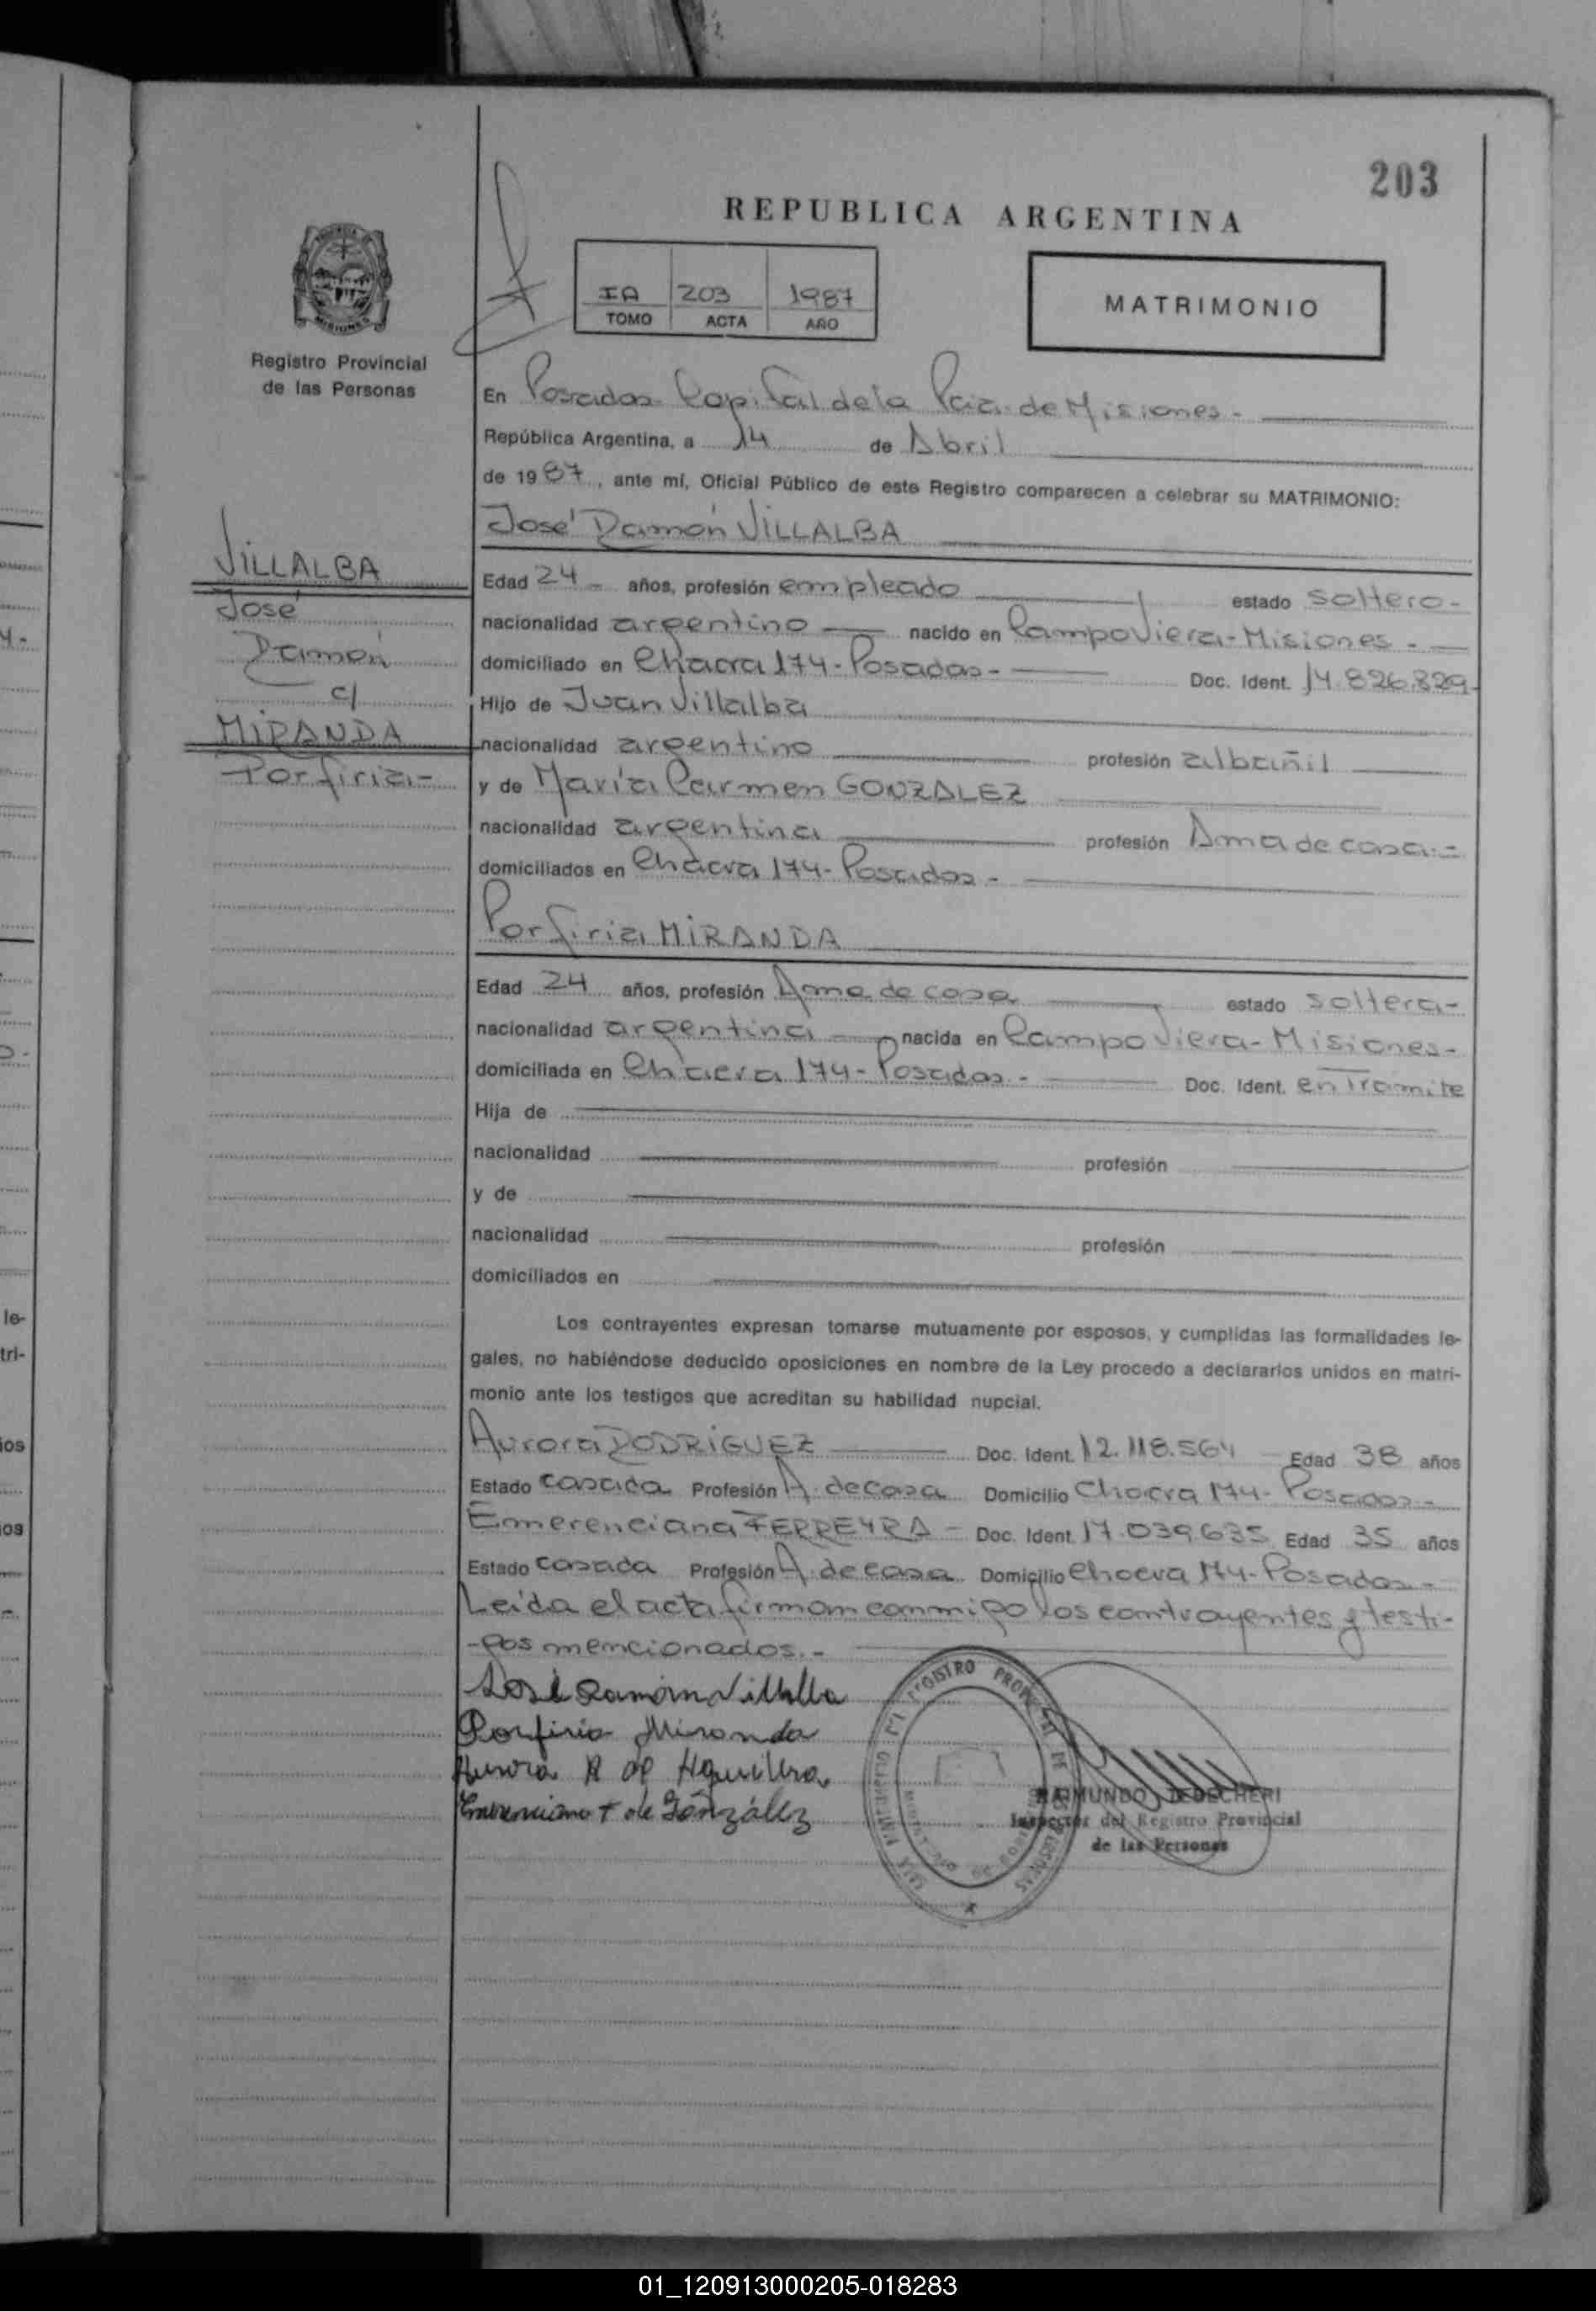 203
REPUBLICA ARGENTINA
IA 203 1987
TOMO ACTA AÑO
MATRIMONIO
MISIONES
Registro Provincial
de las Personas
En Posadas Capital de la Pcia. de Misiones -
República Argentina, a 14 de Abril
de 1987, ante mí, Oficial Público de este Registro comparecen a celebrar su MATRIMONIO:
José Ramón VILLALBA
VILLALBA
José
Ramón
c/
MIRANDA
Porfiria -
Edad 24 - años, profesión empleado estado soltero -
nacionalidad argentino nacido en Campo Viera - Misiones -
domiciliado en Chacra 174 - Posadas - Doc. Ident. 14.826.829 -
Hijo de Juan Villalba
nacionalidad argentino profesión albañil
y de María Carmen GONZALEZ
nacionalidad argentina profesión Ama de casa. -
domiciliados en Chacra 174 - Posadas -
Porfiria MIRANDA
Edad 24 años, profesión Ama de casa estado soltera -
nacionalidad argentina nacida en Campo Viera - Misiones -
domiciliada en Chacra 174 - Posadas - Doc. Ident. en Tramite
Hija de
nacionalidad profesión
y de
nacionalidad profesión
domiciliados en
Los contrayentes expresan tomarse mutuamente por esposos, y cumplidas las formalidades le-
gales, no habiéndose deducido oposiciones en nombre de la Ley procedo a declararlos unidos en matri-
monio ante los testigos que acreditan su habilidad nupcial.
Aurora RODRIGUEZ Doc. Ident. 12.118.564 Edad 38 años
Estado casada Profesión A. de casa Domicilio Chacra 174 - Posadas -
Emerenciana FERREYRA - Doc. Ident. 17.039.635 Edad 35 años
Estado casada Profesión A. de casa Domicilio Chacra 174 - Posadas -
Leída el acta firman conmigo los contrayentes y testi-
-gos mencionados. -
José Ramón Villalba
Porfiria Miranda
Aurora R de Aguilera
Emerenciana F de González
REGISTRO PROVINCIAL DE LAS PERSONAS
RAIMUNDO
Inspector del Registro Provincial
de las Personas
01_120913000205-018283